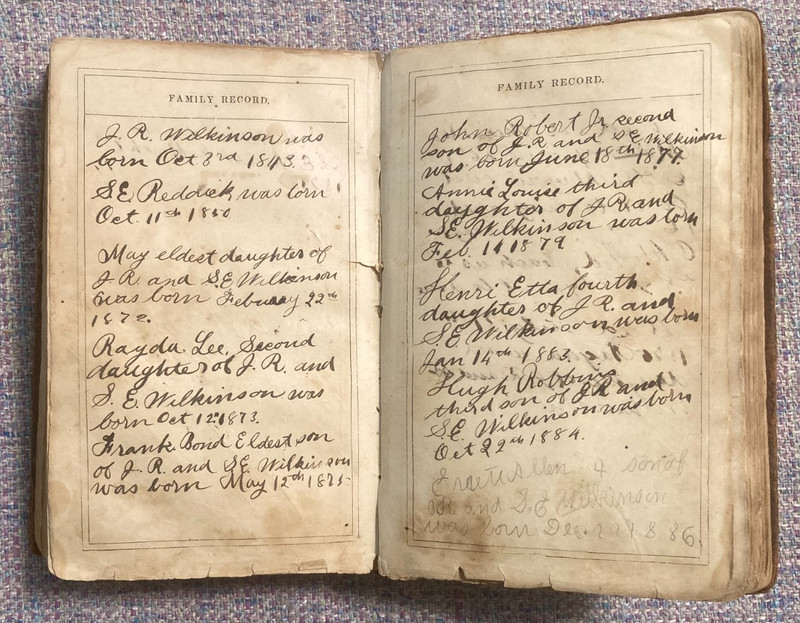 FAMILY RECORD.
J. R. Wilkinson was
born Oct 3rd 1843.
S.E. Reddick was born
Oct. 11th 1850
May eldest daughter of
J.R. and S.E. Wilkinson
was born Febuary 22nd
1872.
Rayda Lee, Second
daughter of J. R. and
S. E. Wilkinson was
born Oct 12th 1873.
Frank Bond Eldest son
of J. R. and S.E. Wilkinson
was born May 12th 1875
FAMILY RECORD.
John Robert Jr, second
son of J.R. and S.E. Wilkinson
was born June 18th 1877.
Annie Louise third
daughter of J.R. and
S.E. Wilkinson was born
Feb. 14 1879
Henri Etta fourth
daughter of J.R. and
S.E. Wilkinson was born
Jan 14th 1883.
Hugh Robbins
third son of J.R. and
S.E. Wilkinson was born
Oct 22nd 1884.
Allen 4 son of
R. and S.E. Wilkinson
was born Dec. 1886.